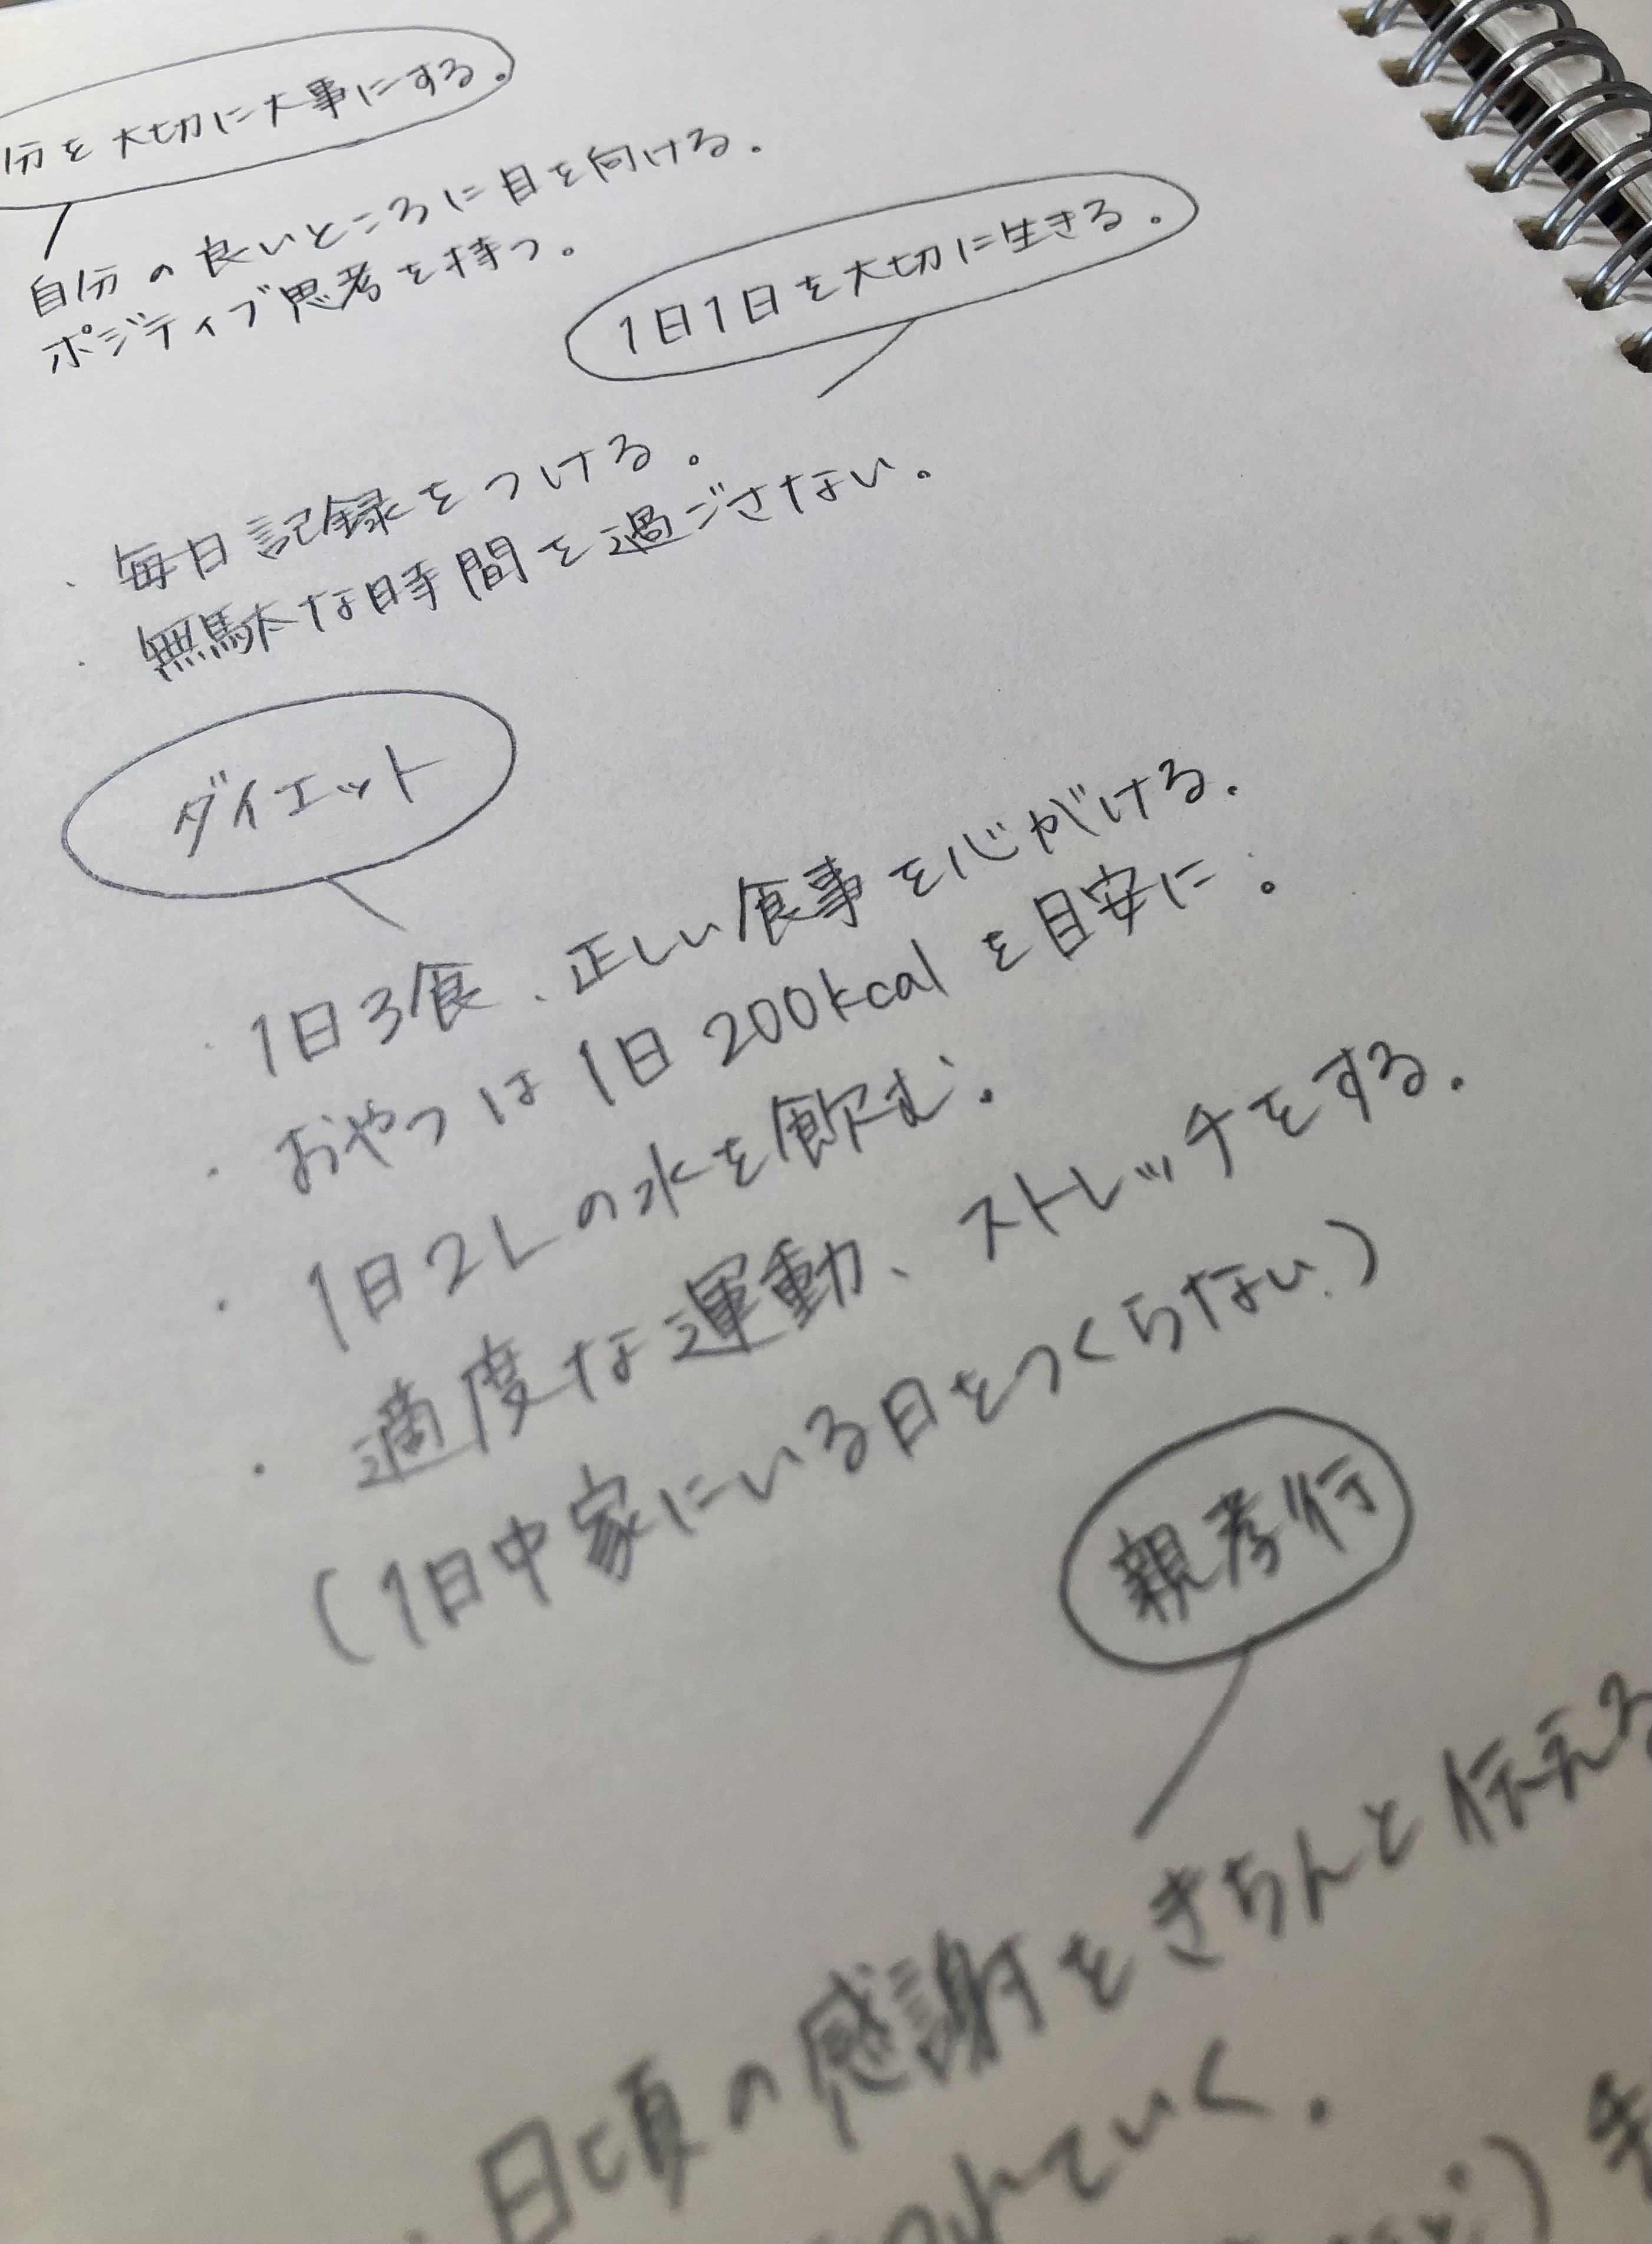 分を大切に大事にする。
自分の良いところに目を向ける。
ポジティブ思考を持つ。
1日1日を大切に生きる。
・毎日記録をつける。
・無駄な時間を過ごさない。
ダイエット
・1日3食、正しい食事を心がける。
・おやつは1日200kcalを目安に。
・1日2Lの水を飲む。
・適度な運動、ストレッチをする。
(1日中家にいる日をつくらない。)
親孝行
・日頃の感謝をきちんと伝える
れていく。